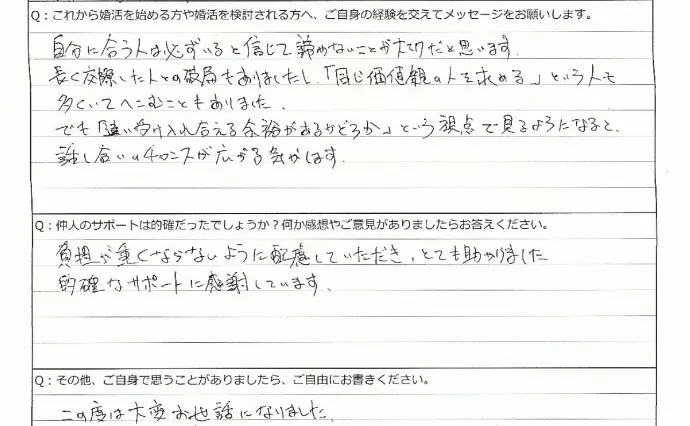 Q：これから婚活を始める方や婚活を検討される方へ、ご自身の経験を交えてメッセージをお願いします。
自分に合う人は必ずいると信じて諦めないことが大切だと思います.
長く交際した人との破局もありましたし、「同じ価値観の人を求める」という人も
多くいてへこむこともありました.
でも「違い受け入れ合える余裕があるかどうか」という視点で見るようになると、
話し合いのチャンスが広がる気がします.
Q：仲人のサポートは的確だったでしょうか？何か感想やご意見がありましたらお答えください。
負担が重くならないように配慮していただき、とても助かりました
的確なサポートに感謝しています.
Q：その他、ご自身で思うことがありましたら、ご自由にお書きください。
この度は大変お世話になりました.